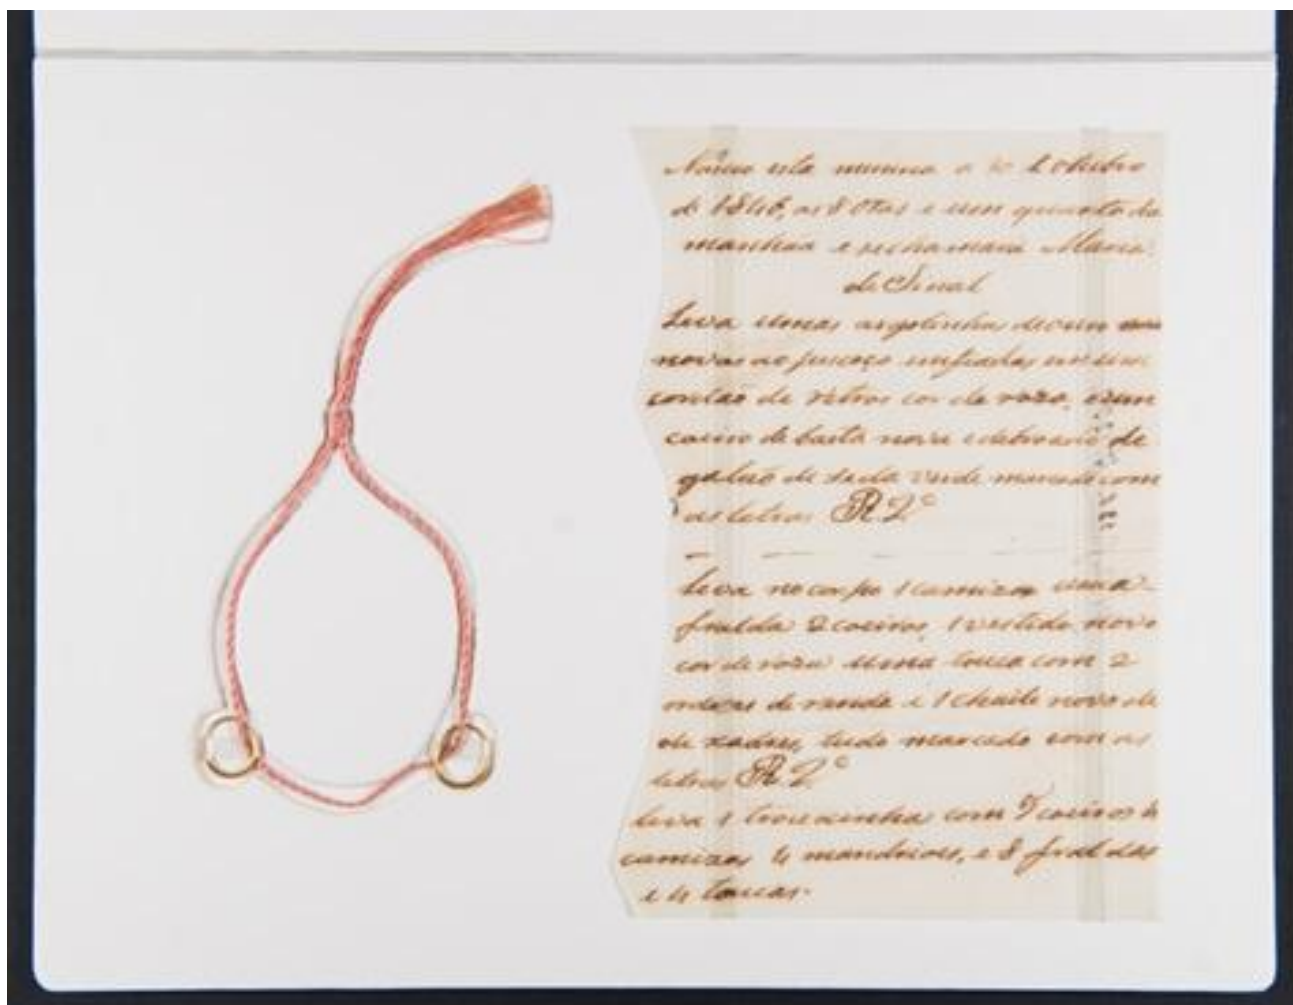 Nasceo esta menina a 10 Outubro
de 1846, as 8 Oras e um quarto da
manhãa e sechamara Maria.
de Sinal
Leva umas argolinhas de
novas ao pescoço emfiadas em um
cordão de retros cor de roza, e um
coeiro de baeta nova e debroado de
galão de seda verde marcado com
as letras R L
Leva no corpo 1 camiza uma
fralda 2 coeiros, 1 vestido novo
cor de roza uma touca com 2
ordens de renda e 1 chaile novo de
de xadres, tudo marcado com as
letras R L
leva 1 trouxinha com 7 coeiros 4
camizas 4 mandrioes, e 8 fraldas
e 4 toucas.